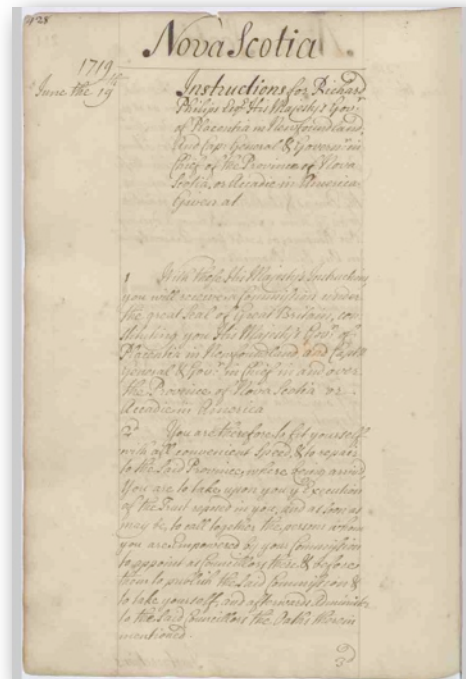 428
Nova Scotia
1719
June the 19th
Instructions for Richard
Philips Esqr. His Majesty's Govr.
of Placentia in Newfoundland,
And Capt. General & Governr. in
Chief of the Province of Nova
Scotia, or Accadie in America
Given at
1 With these His Majesty's Instructions
you will receive a Commission under
the great Seal of Great Britain, con-
stituting you His Majesty's Govr. of
Placentia in Newfoundland, and Captn.
General & Govr. in Chief in and over
the Province of Nova Scotia or
Accadie in America
2d. You are therefore to fit yourself
with all convenient Speed, & to repair
to the said Province, where being arrived
You are to take upon you ye. Execution
of the Trust reposed in you, and as soon as
may be, to call together the persons whom
you are Empowered by your Commission
to appoint as Councillors there & before
them to publish the said Commission &
to take yourself, and afterwards Administer
to the said Councillors the Oaths therein
mentioned.
3d